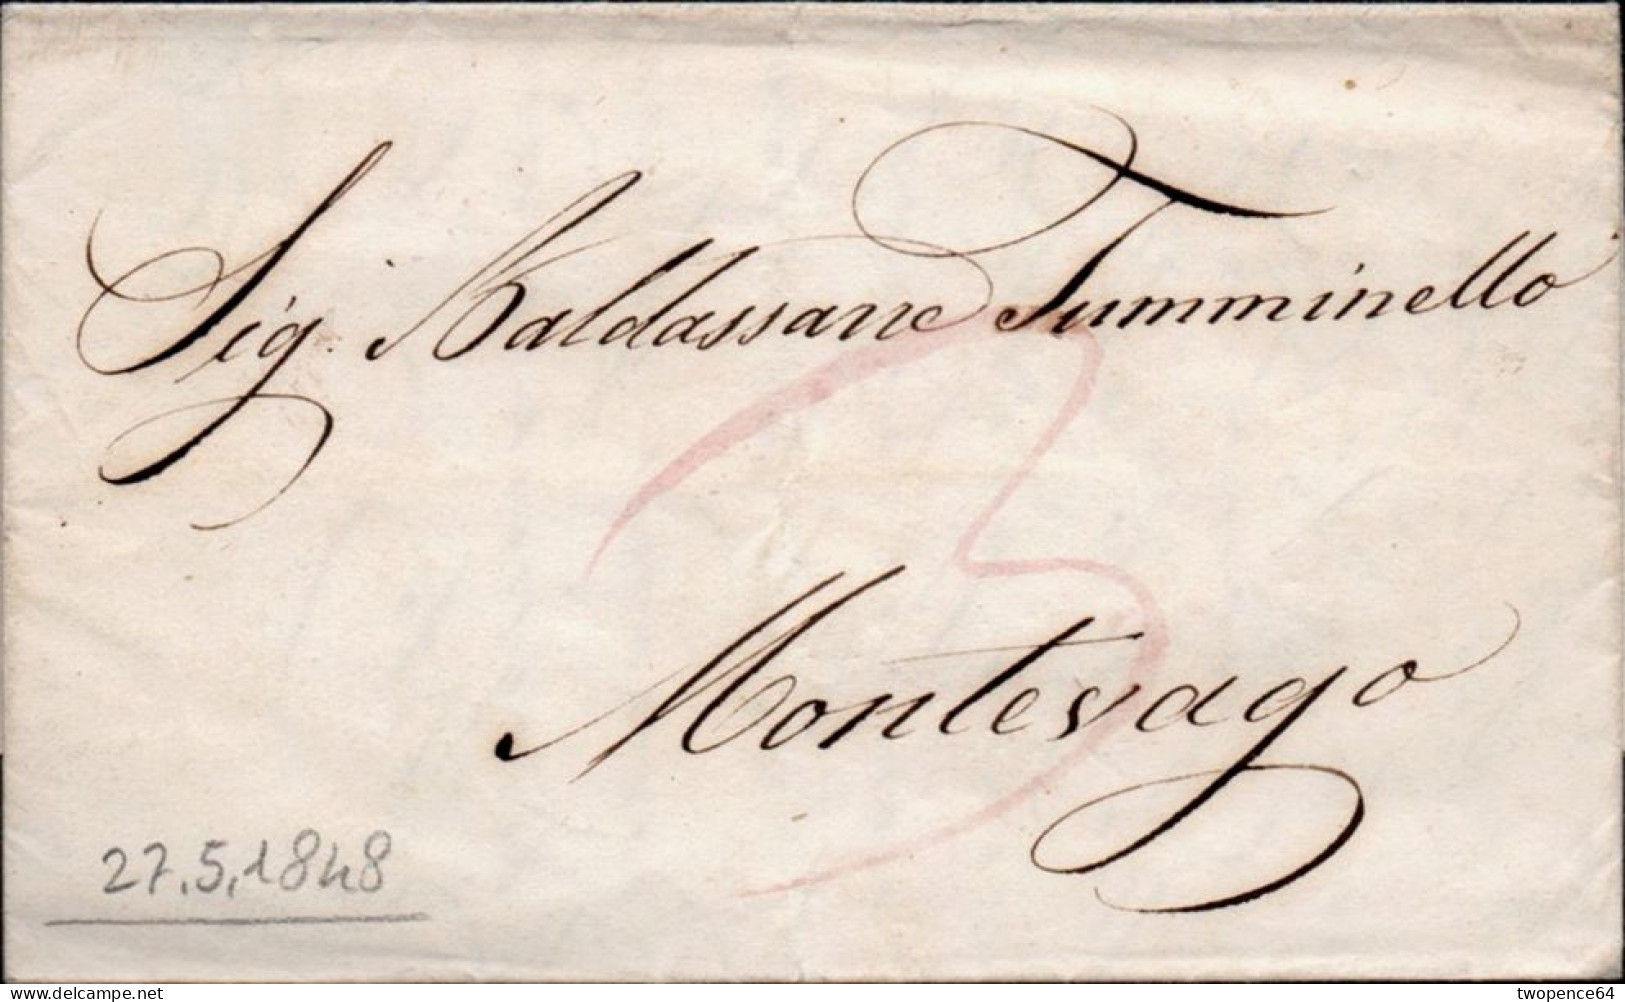 Sig. Baldassarre Tumminello
3
Montevago
27.5.1848
delcampe.net
twopence64